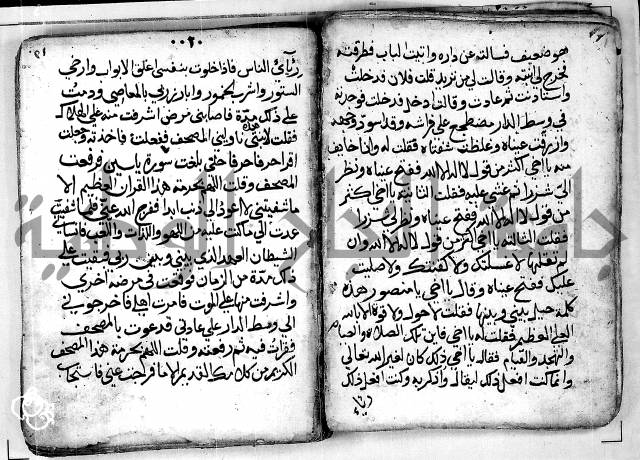 هو ضعيف فسالته عن داره واتيت الباب فطرقته
فخرج لي ابنته وقالت لي من تريد قلت فلان فدخلت
واستاذنت ثم عادت وقالت ادخل فدخلت فوجدته
في وسط الدار مضطجع على فراشه وقد اسود وجهه
وازرقت عيناه وغلظت شفتاه فقلت له وانا خايف
منه يا اخي اكثر من قول لا اله الا الله ففتح عيناه ونظر
الي شزرا ثم غشي عليه فقلت الثانية يا اخي اكثر
من قول لا اله الا الله ففتح عيناه ونظر لي شزرا
فقلت الثالثة يا اخي اكثر من قول لا اله الا الله وان
لم تقلها لا غسلتك ولا كفنتك ولا صليت
عليك ففتح عيناه وقال يا اخي يا منصور هذه
كلمة حيل بيني وبينها فقلت لا حول ولا قوة الا بالله
العلي العظيم فقلت له يا اخي فاين تلك الصلاة والصيام
والتهجد والقيام فقال يا اخي ذلك كان لغير الله تعالى
وانما كنت افعل ذلك ليقال واذكر به وكنت افعل ذلك
رياء
٠٠٢٠
رياء الناس فاذا خلوت بنفسي اغلق الابواب وارخي
الستور واشرب الخمور وابارز ربي بالمعاصي ودمت
على ذلك مدة فاصابني مرض اشرفت منه على الهلاك
فقلت لابنتي ناوليني المصحف ففعلت فاخذته وجعلت
اقرا حرفا حرفا حتى بلغت سورة ياسين فرفعت
المصحف وقلت اللهم بحرمة هذا القران العظيم الا
ما شفيتني لا اعود الى ذنب ابدا ففرج الله عني فلما شفيت
عدت الى ما كنت عليه من اللهو واللذات واللعب فانساني
الشيطان العهد الذي بيني وبين ربي فبقيت على
ذلك مدة من الزمان فوقعت في مرضة اخرى
واشرفت منها على الموت فامرت اهلي فاخرجوني
الى وسط الدار على عادتي فدعوت بالمصحف
وقرات فيه ثم رفعته وقلت اللهم بحرمة هذا المصحف
الكريم من كلامك القديم الا ما فرجت عني فاستجاب
جامعة النجاح الوطنية